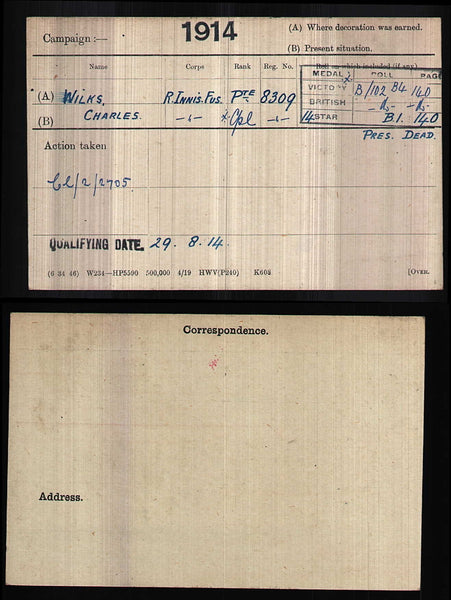 Campaign :— 1914 (A) Where decoration was earned.
(B) Present situation.
Name Corps Rank Reg. No. Roll on which included (if any).
MEDAL ROLL PAGE
VICTORY B/102 B4 140
BRITISH -do- -do-
14 STAR B.1. 140
(A) WILKS, R. INNIS. FUS. PTE 8309
(B) CHARLES. -"- Cpl -"-
PRES. DEAD.
Action taken
QUALIFYING DATE. 29. 8. 14.
(6 34 46) W234—HP5590 500,000 4/19 HWV(P240) K608 [OVER.
Correspondence.
Address.